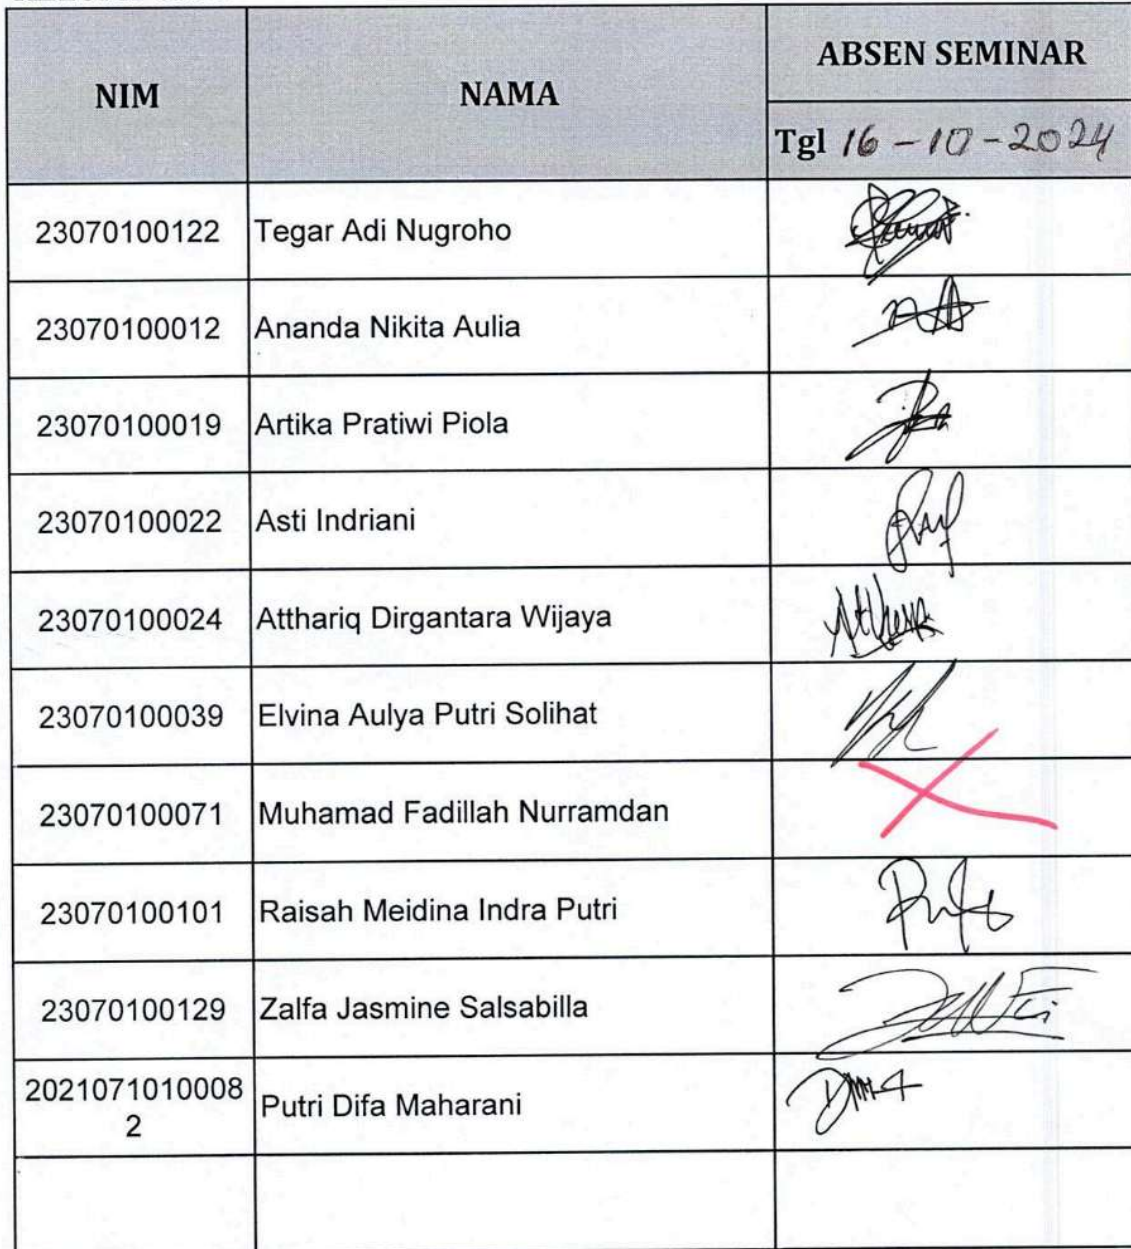 NIM NAMA ABSEN SEMINAR
Tgl 16 - 10 - 2024
23070100122 Tegar Adi Nugroho
23070100012 Ananda Nikita Aulia
23070100019 Artika Pratiwi Piola
23070100022 Asti Indriani
23070100024 Atthariq Dirgantara Wijaya
23070100039 Elvina Aulya Putri Solihat
23070100071 Muhamad Fadillah Nurramdan
23070100101 Raisah Meidina Indra Putri
23070100129 Zalfa Jasmine Salsabilla
2021071010008
2 Putri Difa Maharani